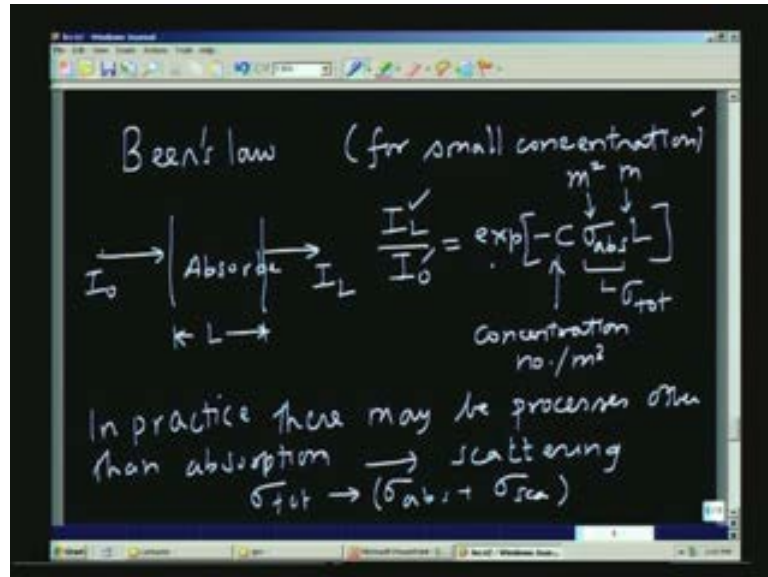 Beer's law (for small concentration)
m² m
I_L / I_0 = exp[-C σ_abs L]
I_0 Absorbe I_L
σ_tot
L
Concentration
no./m³
In practice there may be processes other
than absorption → scattering
σ_tot → (σ_abs + σ_sca)